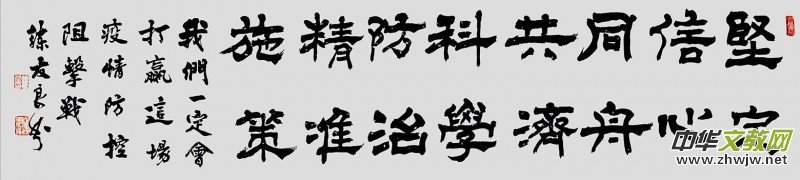 堅定
信心
同舟
共濟
科學
防治
精准
施策
我們一定會
打贏這場
疫情防控
阻擊戰
練友良书
中华文教网
www.zhwjw.net